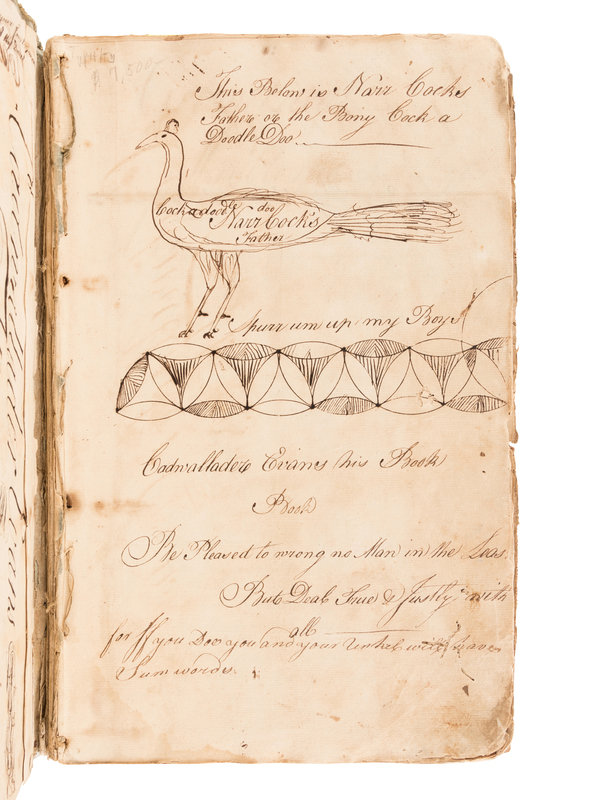 This Below is Narr Cocks
Father or the Bony Cock a
Doodle Doo
Cock a doodle doo
Narr Cock's
Father
Spurr um up my Boys
Cadwallader Evans his Book
Book
Be Pleased to wrong no Man in the Leas
But Deal True & Justly with
all
for If you Doo you and your Unkel will have
Sum words